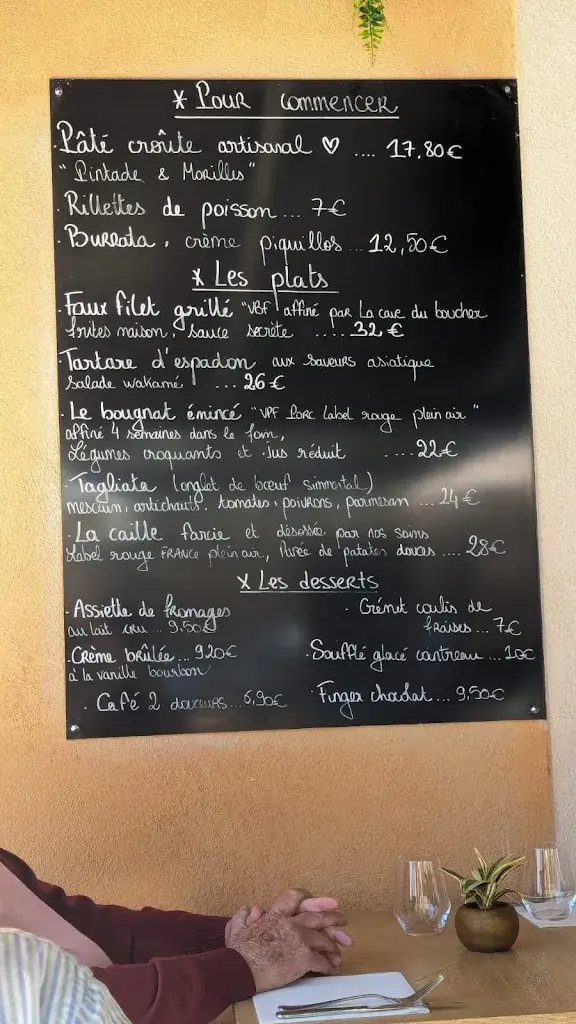 * Pour commencer
. Pâté croûte artisanal ♡ .... 17,80€
"Pintade & Morilles"
. Rillettes de poisson ... 7€
. Burrata, crème piquillos ... 12,50€
* Les plats
. Faux filet grillé "VBF affiné par La cave du boucher
frites maison, sauce secrète .... 32€
. Tartare d'espadon aux saveurs asiatique
salade wakamé ... 26€
. Le bougnat émincé "VPF Porc label rouge plein air"
affiné 4 semaines dans le foin,
Légumes croquants et jus réduit .... 22€
. Tagliata (onglet de bœuf simmental)
mesclun, artichauts, tomates, poivrons, parmesan .... 24€
. La caille farcie et désossée par nos soins
Label rouge FRANCE plein air, Purée de patates douces .... 28€
* Les desserts
. Assiette de fromages
au lait cru ... 9,50€
. Crème brûlée ... 9,20€
à la vanille bourbon
. Café 2 douceurs ... 6,90€
. Génet coulis de
fraises ... 7€
. Soufflé glacé cointreau ... 10€
. Finger chocolat ... 9,50€